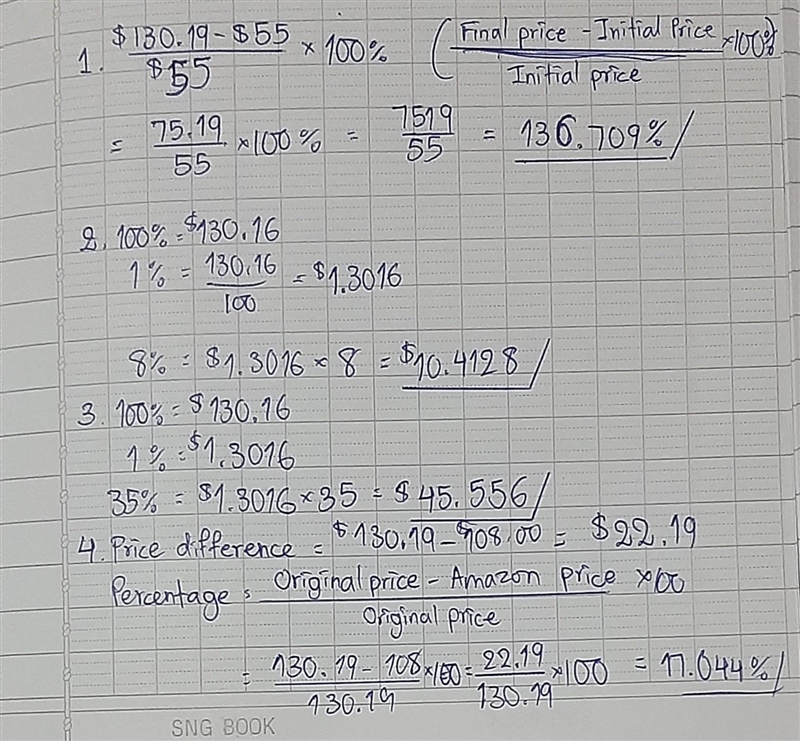 1. $130.19 - $55 / $55 × 100% (Final price - Initial Price / Initial price ×100%)
= 75.19 / 55 ×100% = 7519 / 55 = 136.709%/
2. 100% = $130.16
1% = 130.16 / 100 = $1.3016
8% = $1.3016 × 8 = $10.4128/
3. 100% = $130.16
1% = $1.3016
35% = $1.3016 × 35 = $45.556/
4. Price difference = $130.19 - $108.00 = $22.19
Percentage = Original price - Amazon price / Original price ×100
= 130.19 - 108 / 130.19 ×100 = 22.19 / 130.19 ×100 = 17.044%/
SNG BOOK